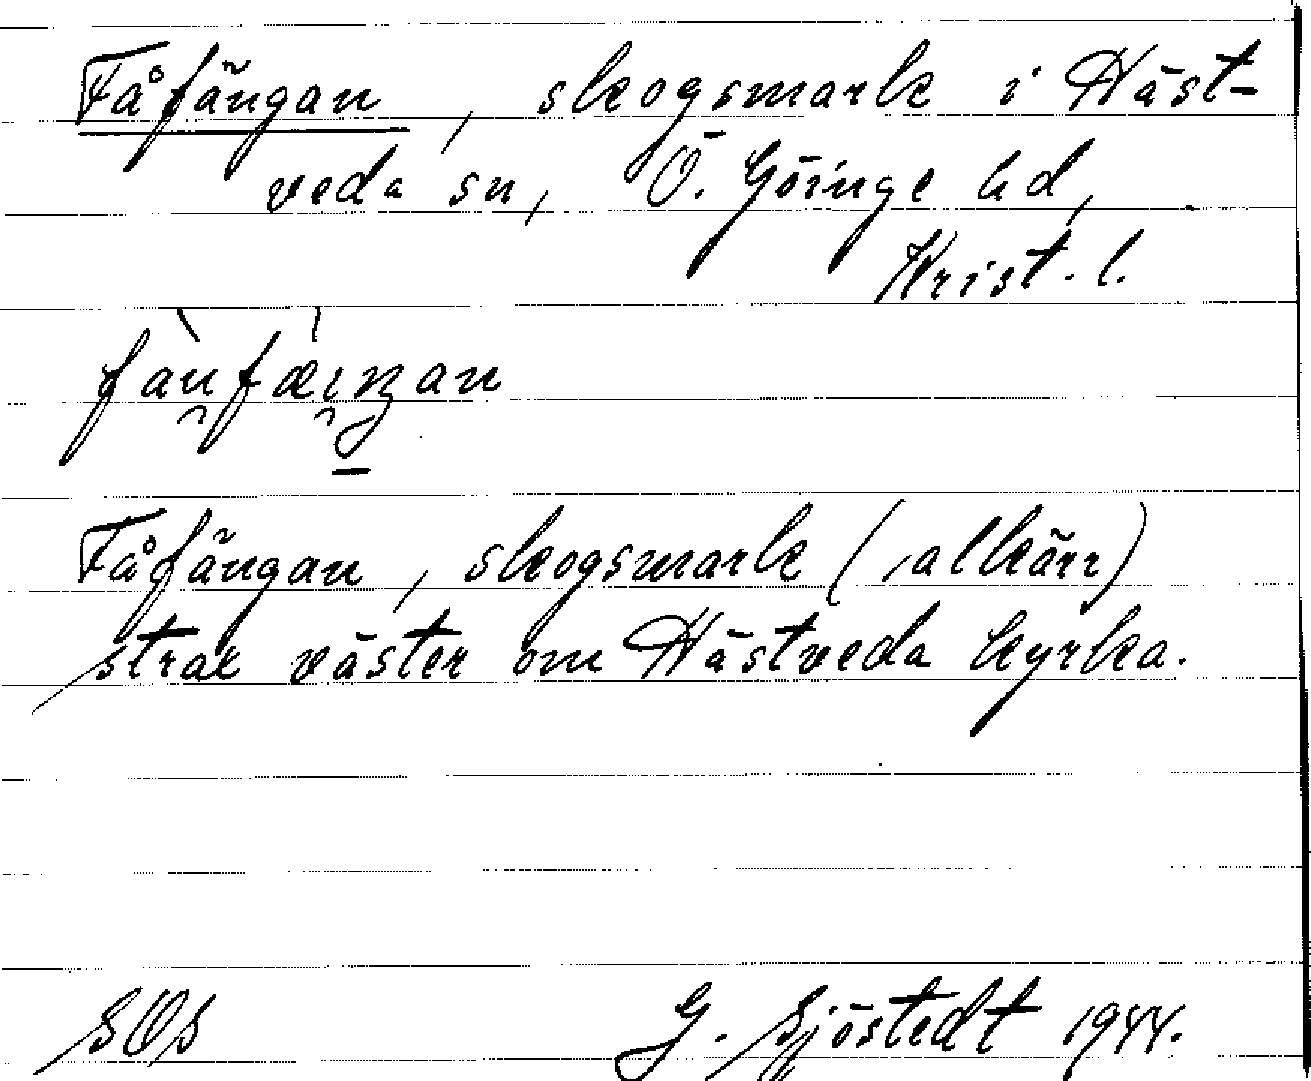 Fåfängan, skogsmark i Häst-
veda sn, Ö. Göinge hd,
Krist. l.
Fåfängan, skogsmark (alkärr)
strax väster om Hästveda kyrka.
SOs G. Sjöstedt 1944.